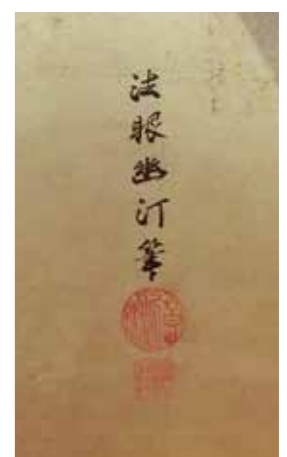 法眼幽汀筆